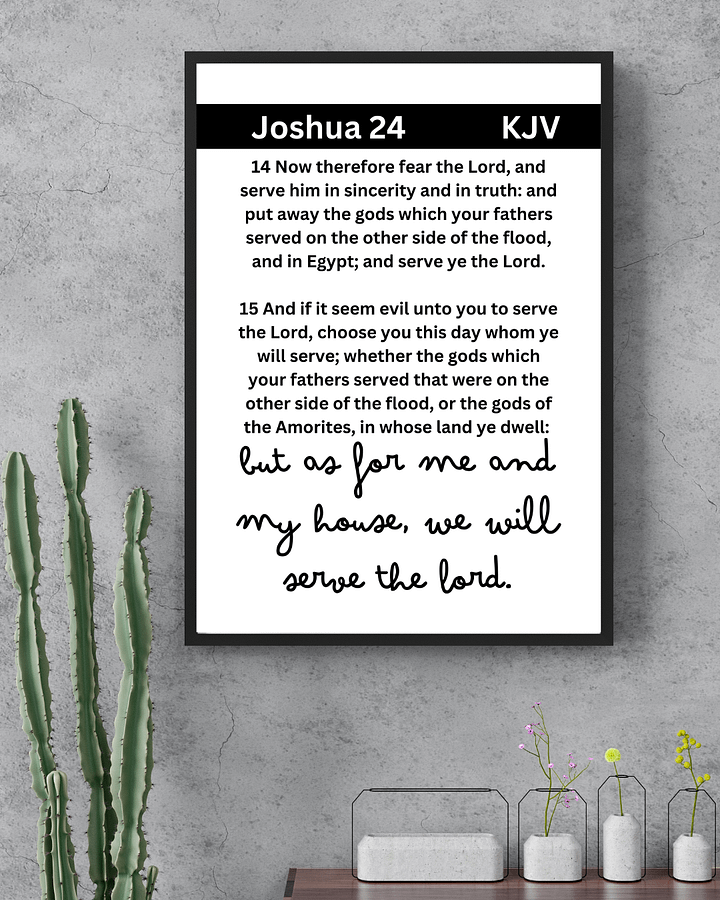 Joshua 24 KJV
14 Now therefore fear the Lord, and
serve him in sincerity and in truth: and
put away the gods which your fathers
served on the other side of the flood,
and in Egypt; and serve ye the Lord.
15 And if it seem evil unto you to serve
the Lord, choose you this day whom ye
will serve; whether the gods which
your fathers served that were on the
other side of the flood, or the gods of
the Amorites, in whose land ye dwell:
but as for me and
my house, we will
serve the lord.